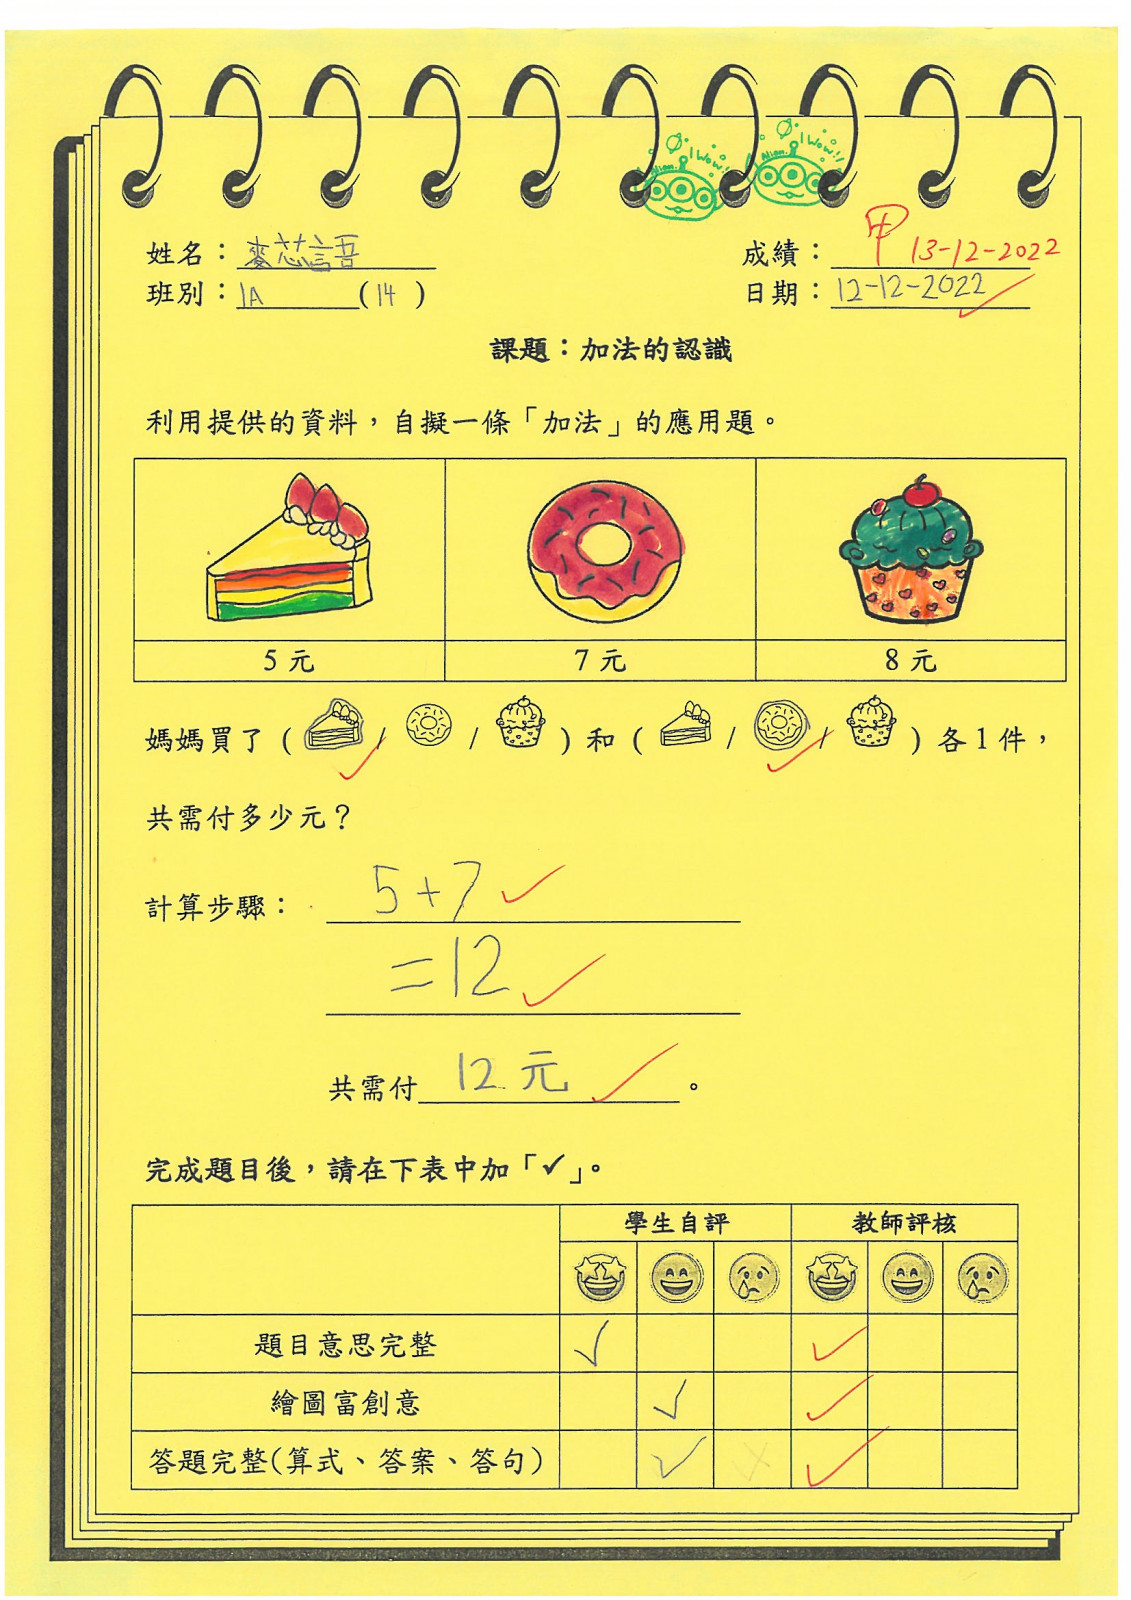 Alien. I Wow!!
Alien. I Wow!!
姓名：麥芯語
成績：甲 13-12-2022
班別：1A (14)
日期：12-12-2022
課題：加法的認識
利用提供的資料，自擬一條「加法」的應用題。
5 元 7 元 8 元
媽媽買了 ( / / ) 和 ( / / ) 各 1 件，
共需付多少元？
計算步驟： 5+7
=12
共需付 12 元 。
完成題目後，請在下表中加「✓」。
學生自評 教師評核
題目意思完整 ✓ ✓
繪圖富創意 ✓ ✓
答題完整(算式、答案、答句) ✓ ✓